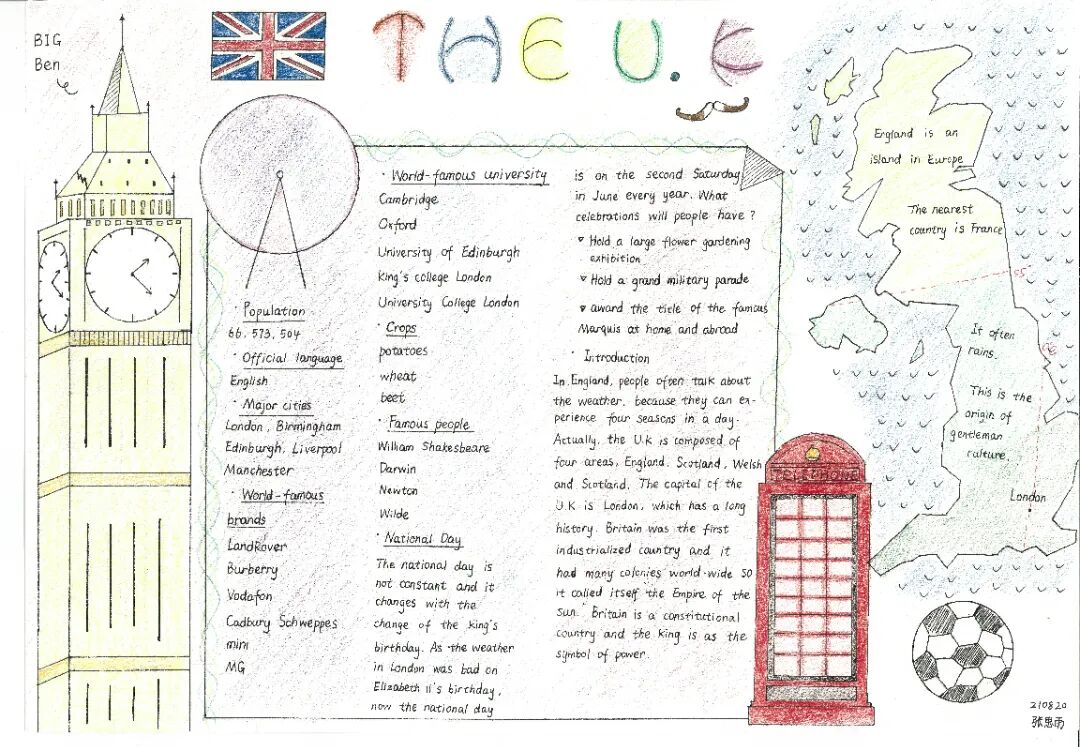 BIG
Ben
THE U.K
· Population
66,573,504
· Official language
English
· Major cities
London, Birmingham
Edinburgh, Liverpool
Manchester
· World-famous
brands
LandRover
Burberry
Vodafon
Cadbury Schweppes
mini
MG
· World-famous university
Cambridge
Oxford
University of Edinburgh
king's college London
University College London
· Crops
potatoes
wheat
beet
· Famous people
William Shakesbeare
Darwin
Newton
Wilde
· National Day
The national day is
not constant and it
changes with the
change of the king's
birthday. As the weather
in London was bad on
Elizabeth II's birthday,
now the national day
is on the second Saturday
in June every year. What
celebrations will people have?
Hold a large flower gardening
exhibition
Hold a grand military parade
award the title of the famous
Marquis at home and abroad
· Introduction
In England, people often talk about
the weather, because they can ex-
perience four seasons in a day.
Actually, the U.K is composed of
four areas, England, Scotland, Welsh
and Scotland. The capital of the
U.K is London, which has a long
history. Britain was the first
industrialized country and it
had many colonies world-wide so
it called itself "the Empire of the
Sun." Britain is a constitutional
country and the king is as the
symbol of power.
TELEPHONE
England is an
island in Europe
The nearest
country is France
55°
It often
rains.
This is the
origin of
gentleman
culture.
London
210820
张思雨